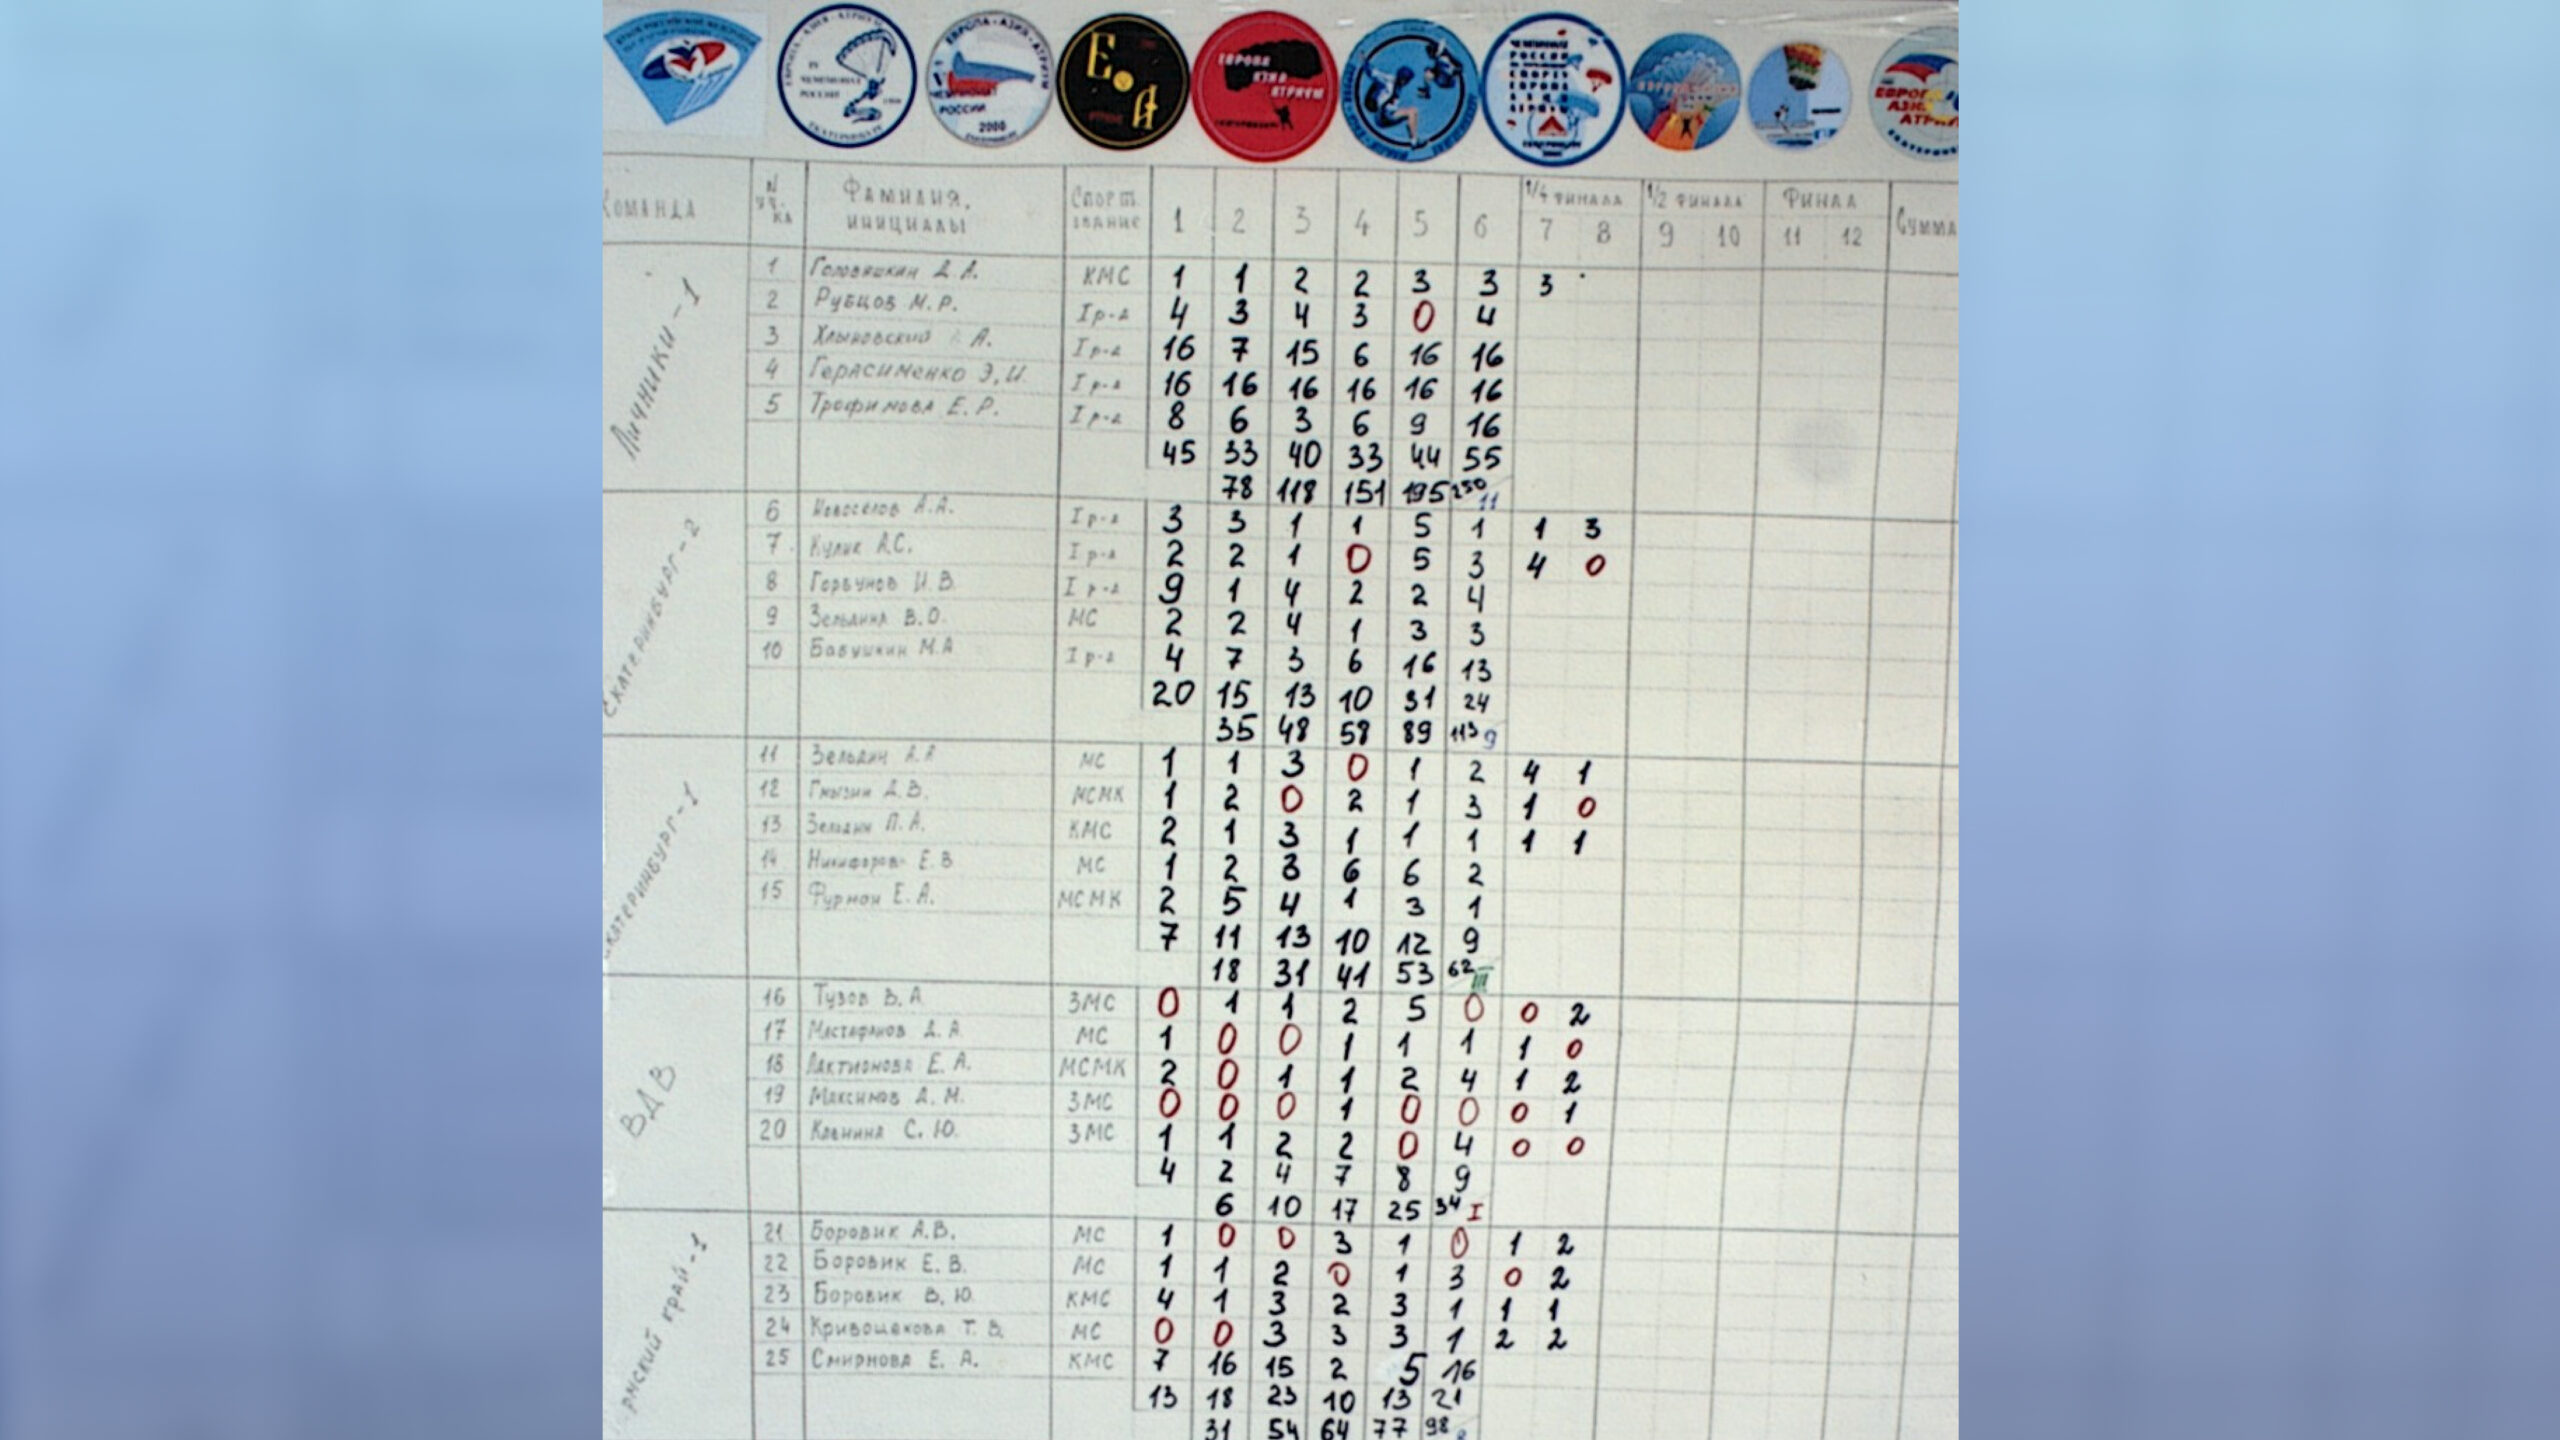 ЕВРОПА-АЗИЯ-АТРИУМ
IV
ЧЕМПИОНАТ
РОССИИ
ЕВРОПА-АЗИЯ-АТРИУМ
ЧЕМПИОНАТ
РОССИИ
2000
Е
А
ЕВРОПА
АЗИЯ
АТРИУМ
ЕВРОПА
АЗИЯ
АТРИУМ
КОМАНДА N УЧ-КА ФАМИЛИЯ, ИНИЦИАЛЫ СПОРТ ЗВАНИЕ 1 2 3 4 5 6 1/4 ФИНАЛА 7 8 1/2 ФИНАЛА 9 10 ФИНАЛ 11 12 СУММА
Личники-1
1 Головяшкин Д.А. КМС 1 1 2 2 3 3 3
2 Рубцов М.Р. I р-д 4 3 4 3 0 4
3 Хлыновский А. I р-д 16 7 15 6 16 16
4 Герасименко Э.И. I р-д 16 16 16 16 16 16
5 Трофимова Е.Р. I р-д 8 6 3 6 9 16
45 33 40 33 44 55
78 118 151 195 250 11
Екатеринбург-2
6 Новоселов А.А. I р-д 3 3 1 1 5 1 1 3
7 Кулик А.С. I р-д 2 2 1 0 5 3 4 0
8 Горбунов И.В. I р-д 9 1 4 2 2 4
9 Зельдина В.О. МС 2 2 4 1 3 3
10 Бабушкин М.А I р-д 4 7 3 6 16 13
20 15 13 10 31 24
35 48 58 89 113 9
Екатеринбург-1
11 Зельдин А.А МС 1 1 3 0 1 2 4 1
12 Гмызин Д.В. МСМК 1 2 0 2 1 3 1 0
13 Зельдин П.А. КМС 2 1 3 1 1 1 1 1
14 Никифоров Е.В МС 1 2 3 6 6 2
15 Фурман Е.А. МСМК 2 5 4 1 3 1
7 11 13 10 12 9
18 31 41 53 62 III
ВДВ
16 Тузов В.А ЗМС 0 1 1 2 5 0 0 2
17 Мастафанов Д.А. МС 1 0 0 1 1 1 1 0
18 Лактионова Е.А. МСМК 2 0 1 1 2 4 1 2
19 Максимов А.М. ЗМС 0 0 0 1 0 0 0 1
20 Кленина С.Ю. ЗМС 1 1 2 2 0 4 0 0
4 2 4 7 8 9
6 10 17 25 34 I
рмский край-1
21 Боровик А.В. МС 1 0 0 3 1 0 1 2
22 Боровик Е.В. МС 1 1 2 0 1 3 0 2
23 Боровик В.Ю. КМС 4 1 3 2 3 1 1 1
24 Кривощекова Т.В. МС 0 0 3 3 3 1 2 2
25 Смирнова Е.А. КМС 7 16 15 2 5 16
13 18 23 10 13 21
31 54 64 77 98 8